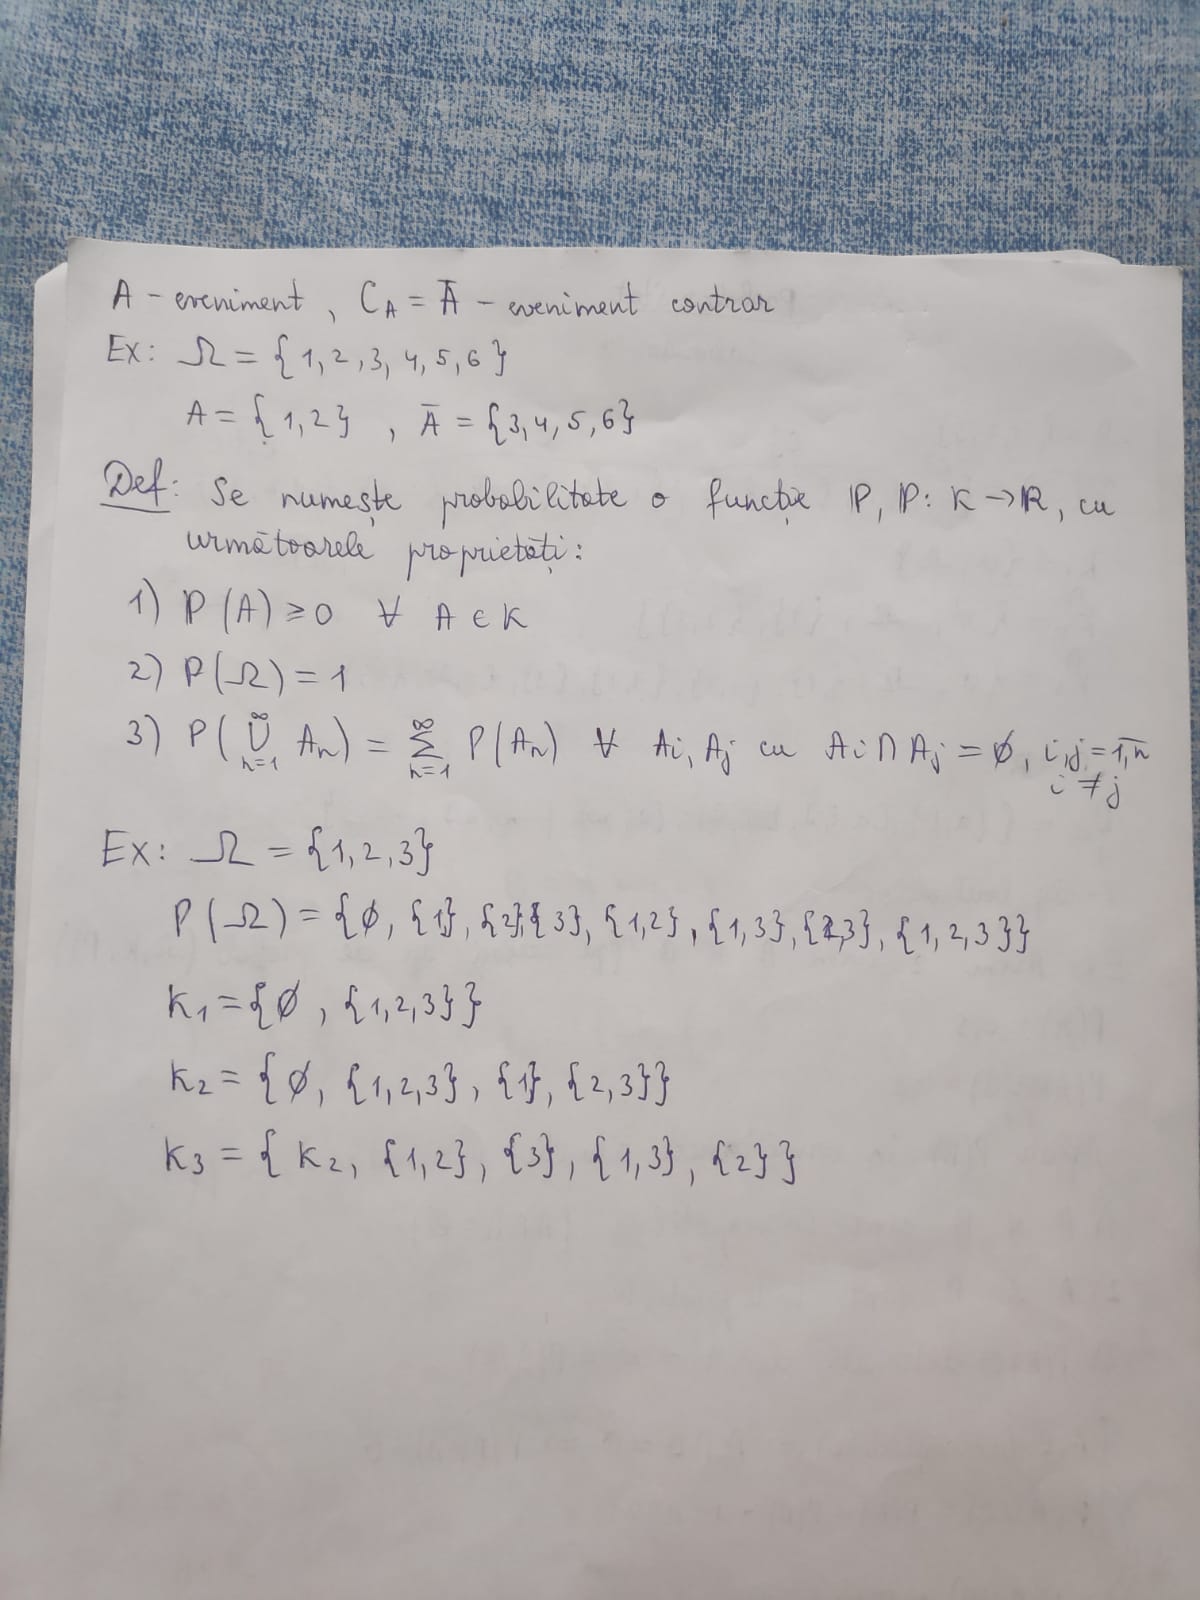 A - eveniment, C_A = Ā - eveniment contrar
Ex: Ω = {1, 2, 3, 4, 5, 6}
A = {1, 2}, Ā = {3, 4, 5, 6}
Def: Se numește probabilitate o funcție ℙ, ℙ: K → ℝ, cu
următoarele proprietăți:
1) ℙ(A) ≥ 0 ∀ A ∈ K
2) P(Ω) = 1
3) P(⋃_{n=1}^{∞} A_n) = ∑_{n=1}^{∞} P(A_n) ∀ A_i, A_j cu A_i ∩ A_j = ∅, i,j = \overline{1,n}
i ≠ j
Ex: Ω = {1, 2, 3}
P(Ω) = {∅, {1}, {2}, {3}, {1, 2}, {1, 3}, {2, 3}, {1, 2, 3}}
K₁ = {∅, {1, 2, 3}}
K₂ = {∅, {1, 2, 3}, {1}, {2, 3}}
K₃ = {K₂, {1, 2}, {3}, {1, 3}, {2}}